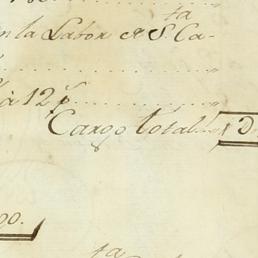 n la Labor de S.ta Ca-
à 12 p
Cargo total
00.
ta